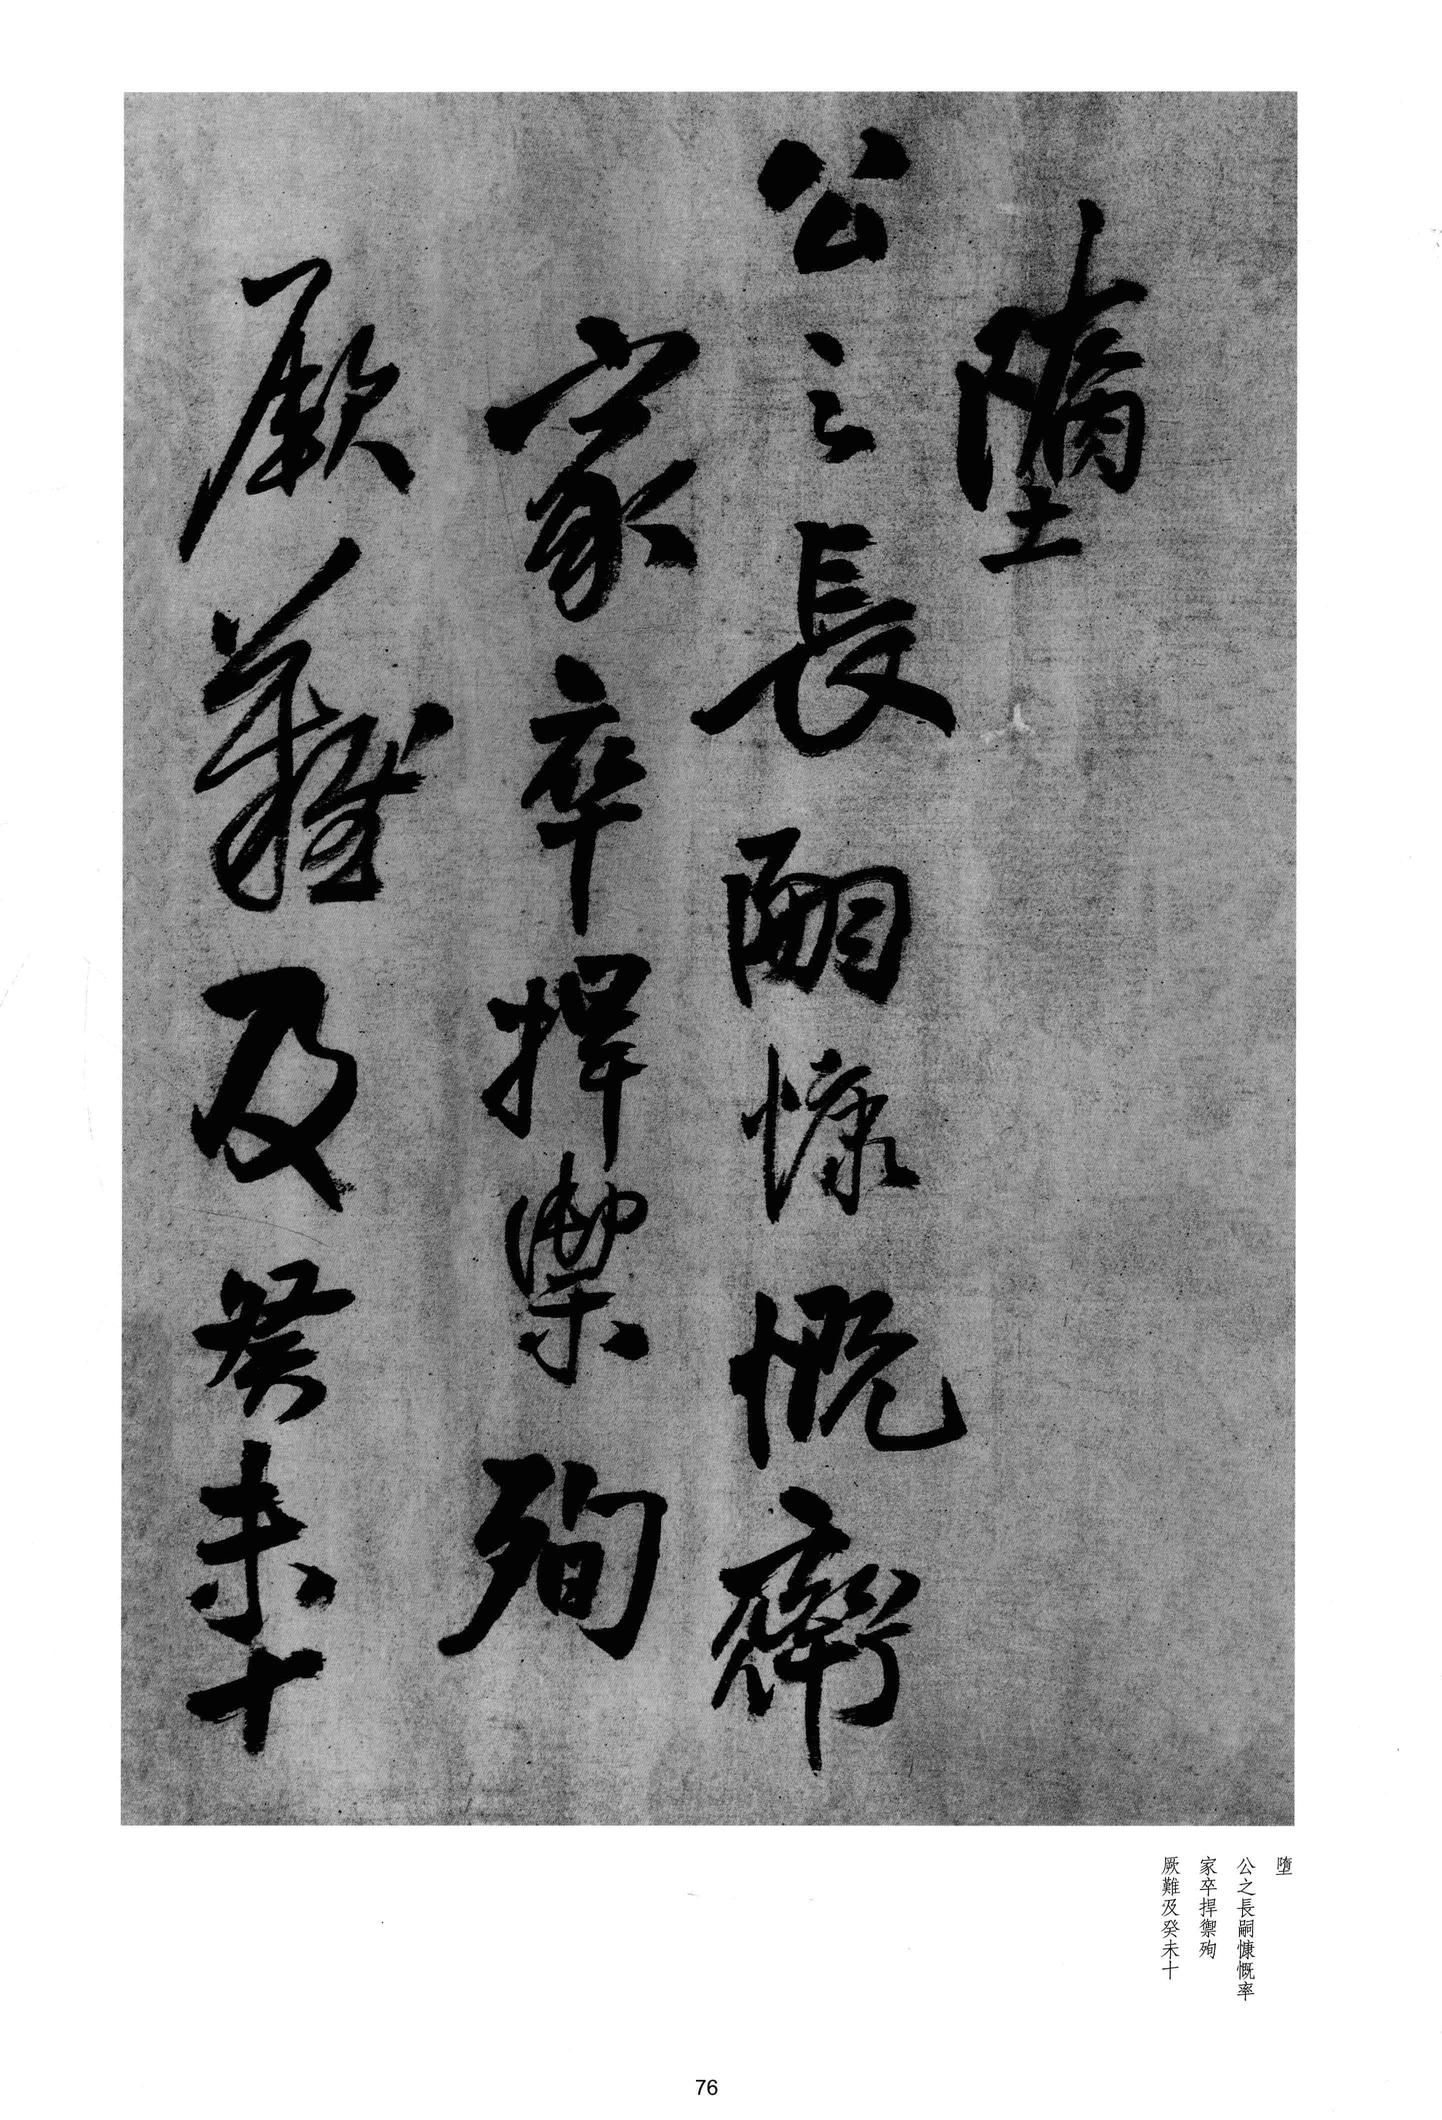 墮
公之長嗣慷慨率
家卒捍禦殉
厥難及癸未十
墮
公之長嗣慷慨率
家卒捍禦殉
厥難及癸未十
76